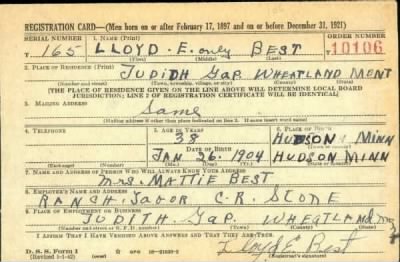 REGISTRATION CARD—(Men born on or after February 17, 1897 and on or before December 31, 1921)
SERIAL NUMBER 1. NAME (Print) ORDER NUMBER
165 LLOYD E. only BEST 10106
(First) (Middle) (Last)
2. PLACE OF RESIDENCE (Print)
JUDITH GAP WHEATLAND MENT
(Number and street) (Town, township, village, or city) (County) (State)
[THE PLACE OF RESIDENCE GIVEN ON THE LINE ABOVE WILL DETERMINE LOCAL BOARD
JURISDICTION; LINE 2 OF REGISTRATION CERTIFICATE WILL BE IDENTICAL]
3. MAILING ADDRESS
Same
[Mailing address if other than place indicated on line 2. If same insert word same]
4. TELEPHONE 5. AGE IN YEARS 6. PLACE OF BIRTH
38 HUDSON MINN
DATE OF BIRTH (Town or county)
JAN 26. 1904 HUDSON MINN
(Exchange) (Number) (Mo.) (Day) (Yr.) (State or country)
7. NAME AND ADDRESS OF PERSON WHO WILL ALWAYS KNOW YOUR ADDRESS
Mrs. MATTIE BEST
8. EMPLOYER'S NAME AND ADDRESS
RANCH. C.R. STONE
9. PLACE OF EMPLOYMENT OR BUSINESS
JUDITH. GAP. WHEATLAND
(Number and street or R. F. D. number) (Town) (County) (State)
I AFFIRM THAT I HAVE VERIFIED ABOVE ANSWERS AND THAT THEY ARE TRUE.
D. S. S. Form 1
(Revised 1-1-42) (over)
Lloyd E Best